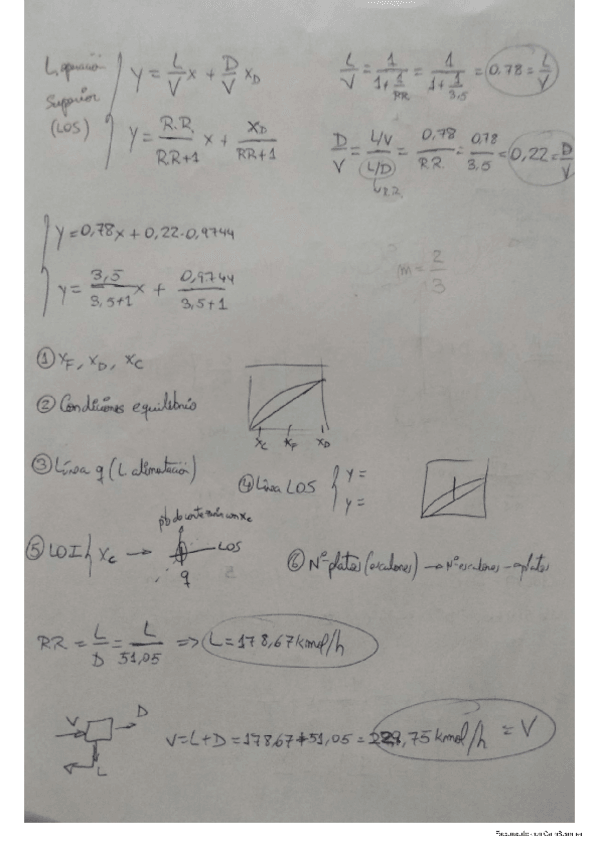 L operación
Superior
(LOS)
y = L/V x + D/V xD
y = R.R./RR+1 x + xD/RR+1
L/V = 1/1+1/RR = 1/1+1/3,5 = 0,78 = L/V
D/V = L/V/L/D = 0,78/RR. = 0,78/3,5 = 0,22 = D/V
R.R.
y = 0,78x + 0,22·0,9744
y = 3,5/3,5+1 x + 0,9744/3,5+1
m = 2/3
① xF, xD, xC
② Condiciones equilibrio
xC xF xD
③ Línea q (L alimentación)
④ Línea LOS
y =
y =
⑤ LOI xC →
pto de corte con xC
LOS
q
⑥ Nº platos (escalones) → Nº escalones = platos
RR = L/D = L/51,05 => L = 178,67 kmol/h
V D L
V = L + D = 178,67 + 51,05 = 229,75 kmol/h = V